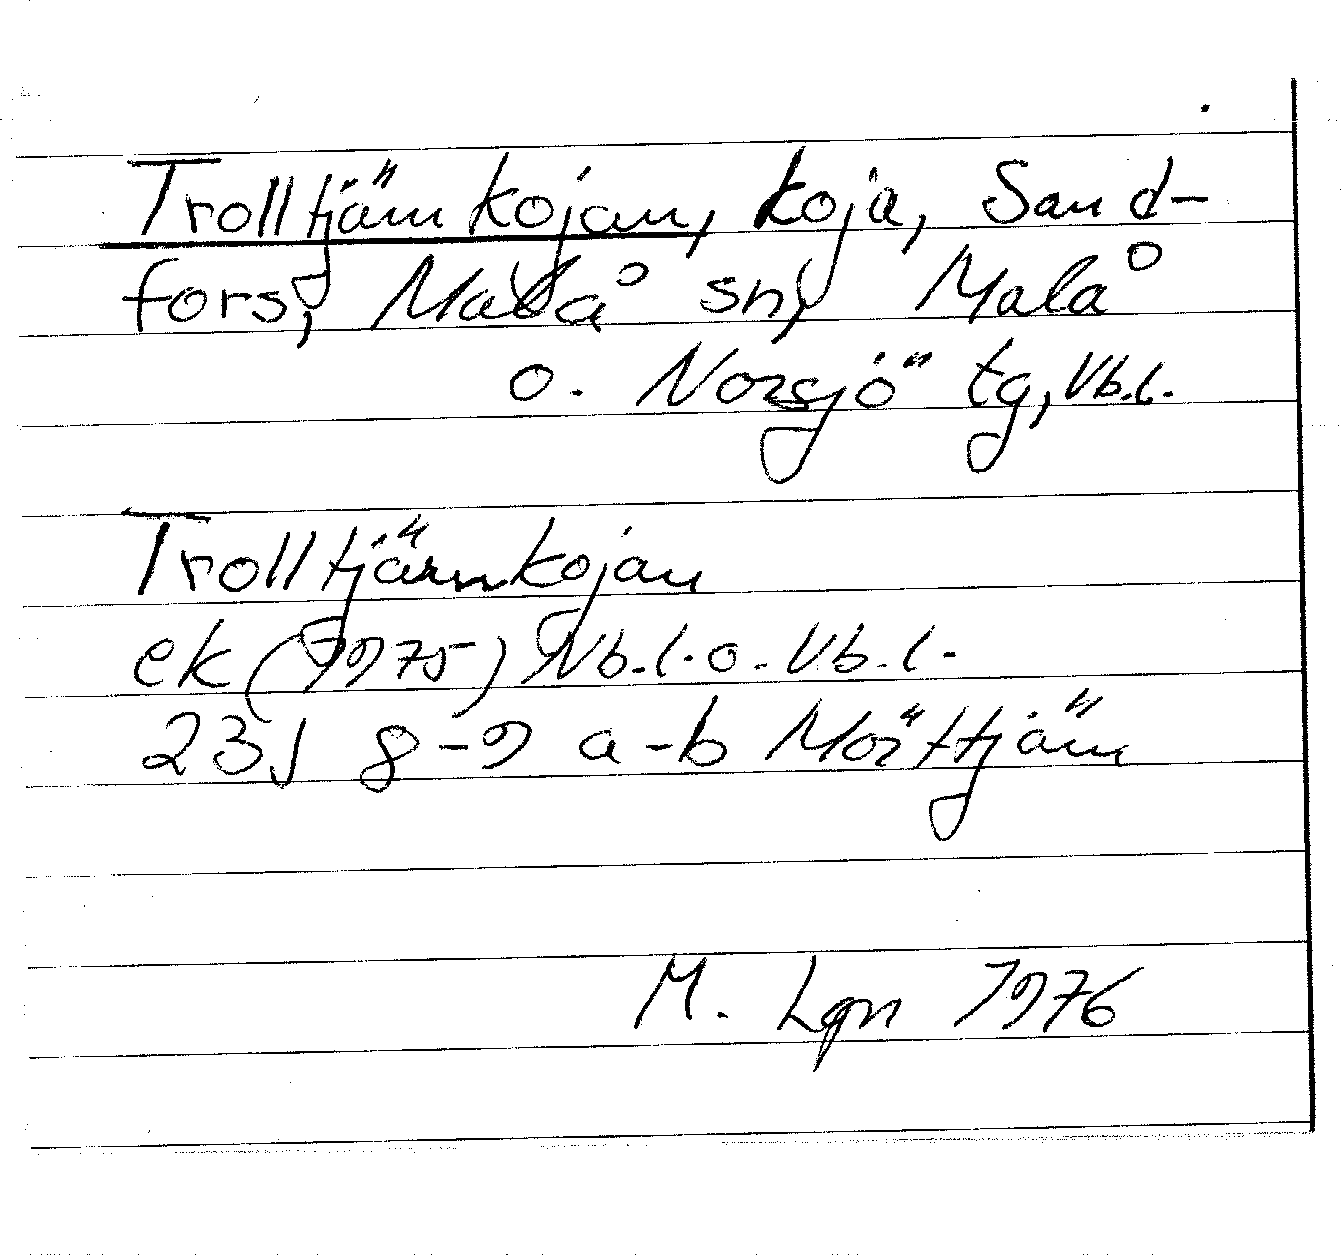 Trolltjärnkojan, koja, Sand-
fors, Malå sn, Malå
o. Norsjö tg, Vb.l.
Trolltjärnkojan
ek (1975) Nb.l. o. Vb.l.
23J 8-9 a-b Mörttjärn
M. Lgn 1976